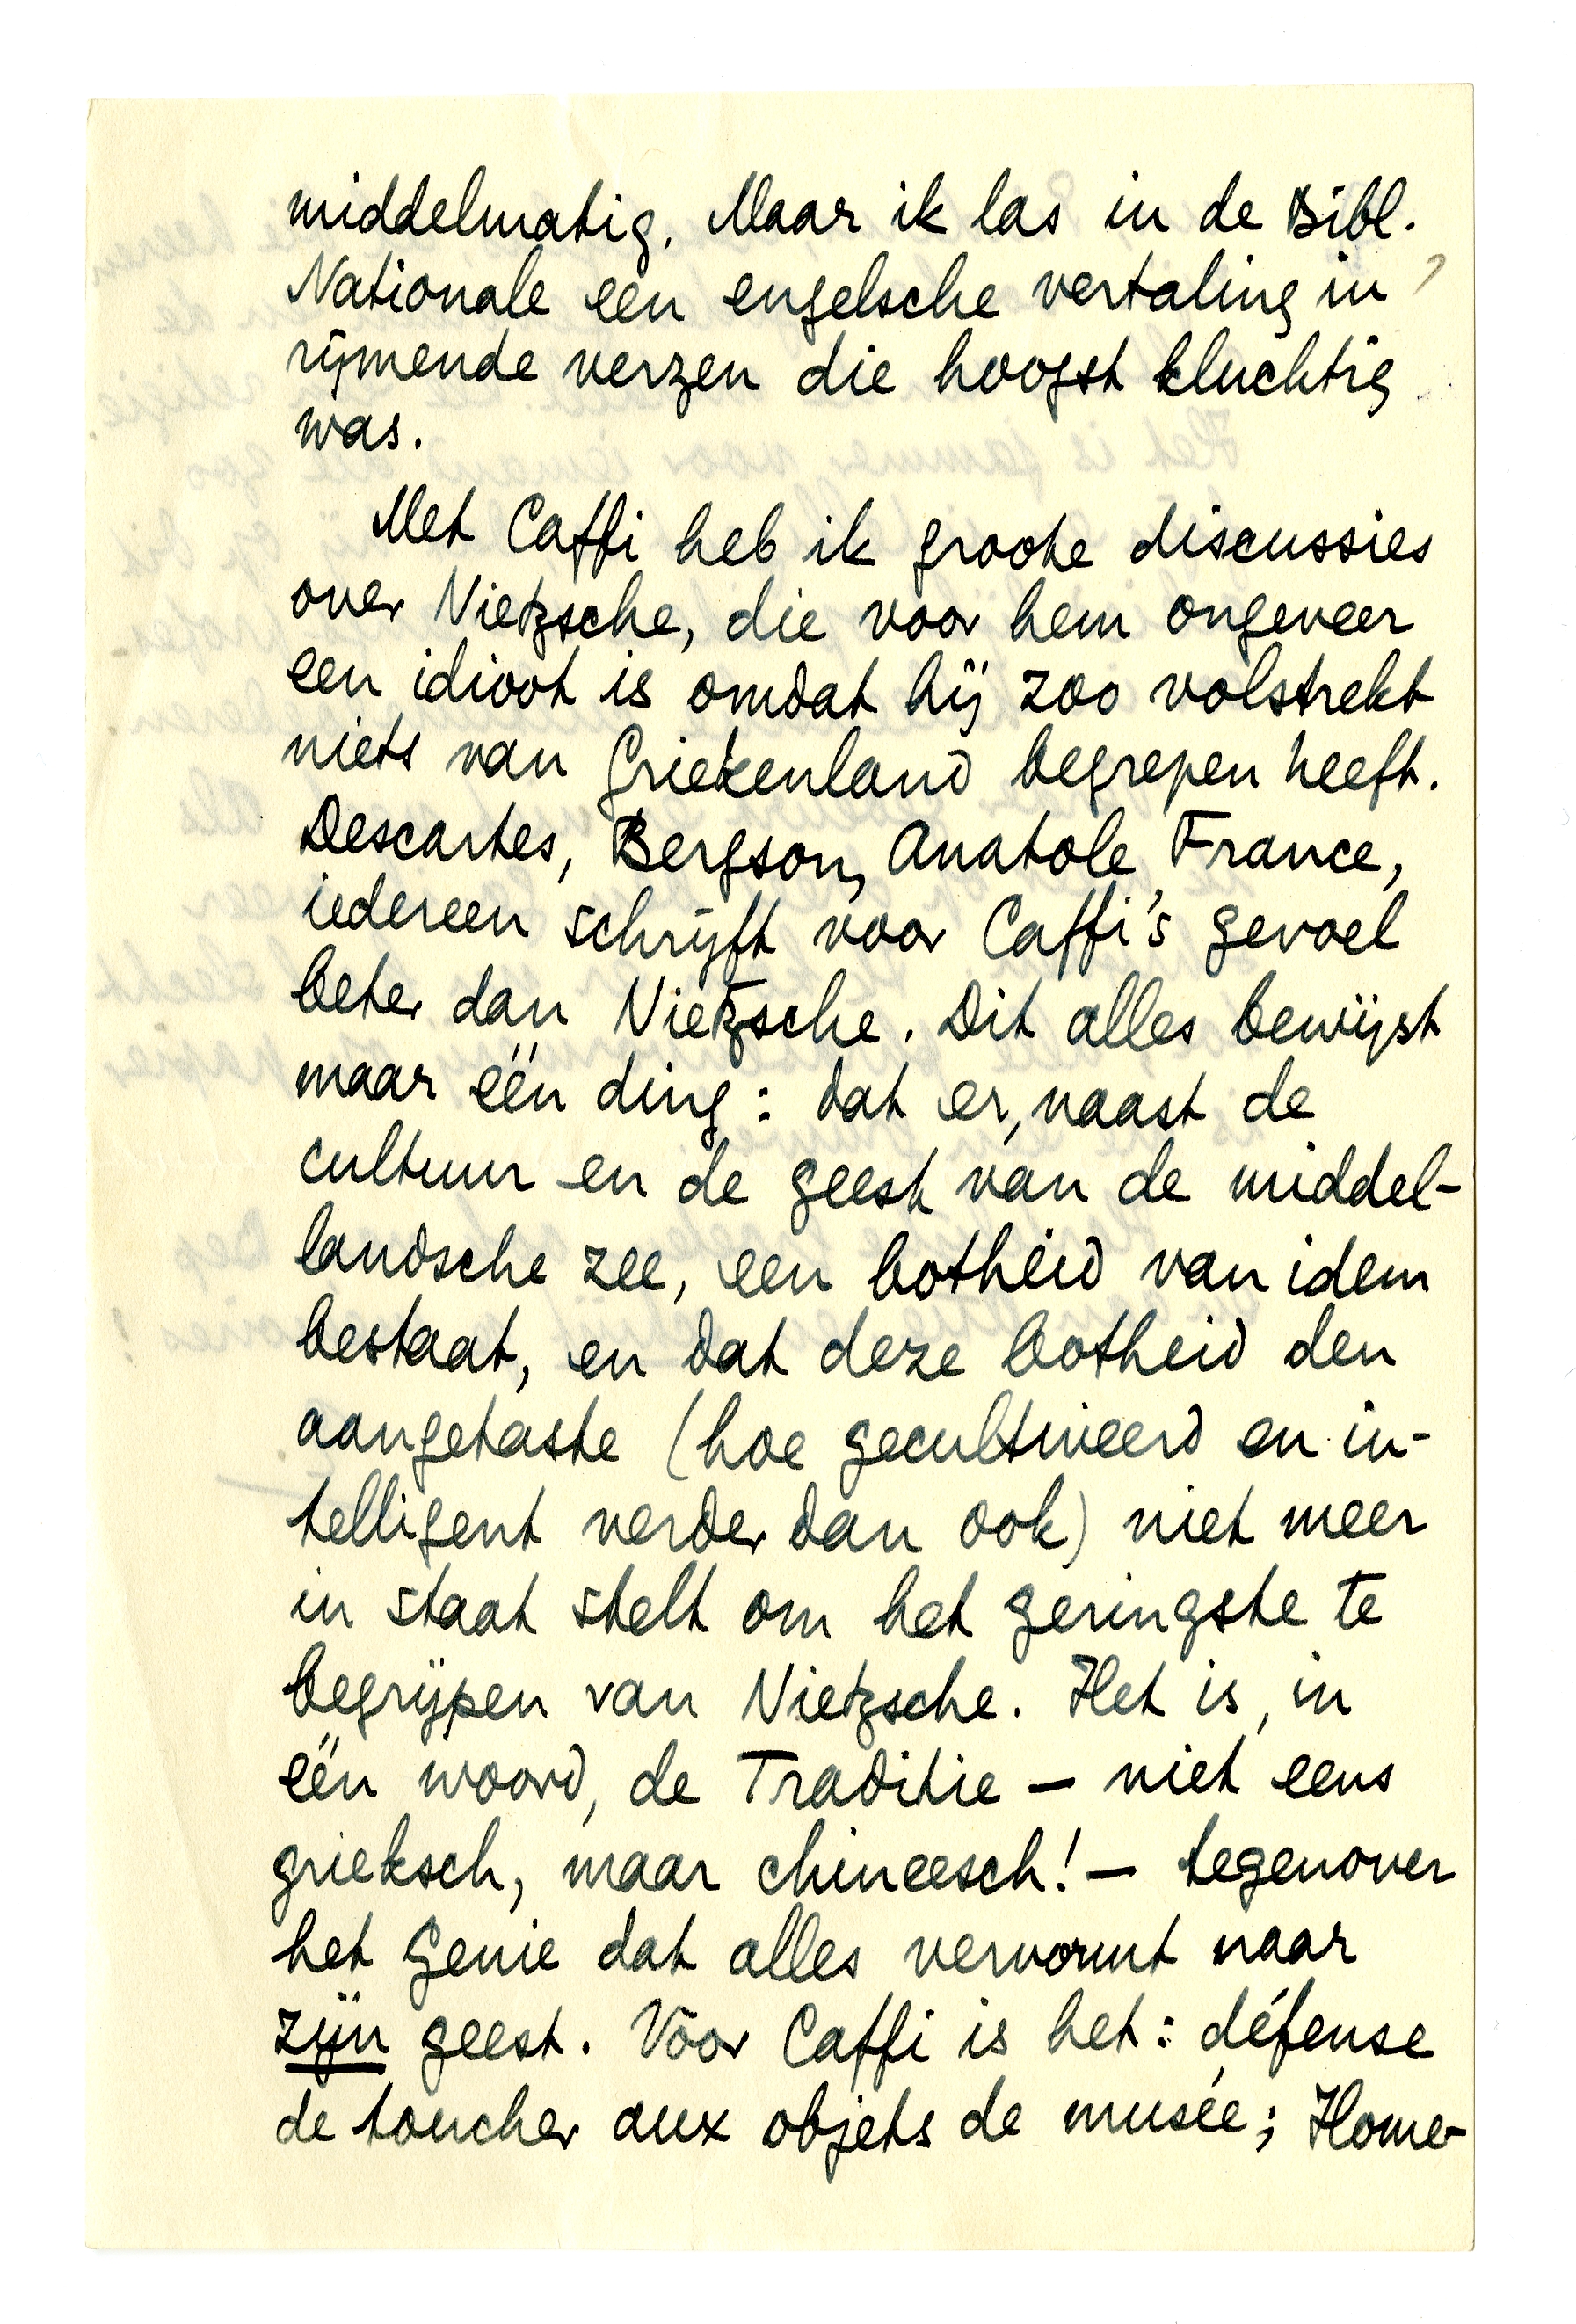 middelmatig. Maar ik las in de Bibl.
Nationale een engelsche vertaling in
rijmende verzen die hoogst kluchtig
was.
Met Caffi heb ik groote discussies
over Nietzsche, die voor hem ongeveer
een idioot is omdat hij zoo volstrekt
niets van Griekenland begrepen heeft.
Descartes, Bergson, Anatole France,
iedereen schrijft voor Caffi's gevoel
beter dan Nietzsche. Dit alles bewijst
maar één ding: dat er, naast de
cultuur en de geest van de middel-
landsche zee, een botheid van idem
bestaat, en dat deze botheid den
aangetaste (hoe gecultiveerd en in-
telligent verder dan ook) niet meer
in staat stelt om het geringste te
begrijpen van Nietzsche. Het is, in
één woord, de Traditie – niet eens
grieksch, maar chineesch! – tegenover
het genie dat alles vervormt naar
zijn geest. Voor Caffi is het: défense
de toucher aux objets de musée; Home-